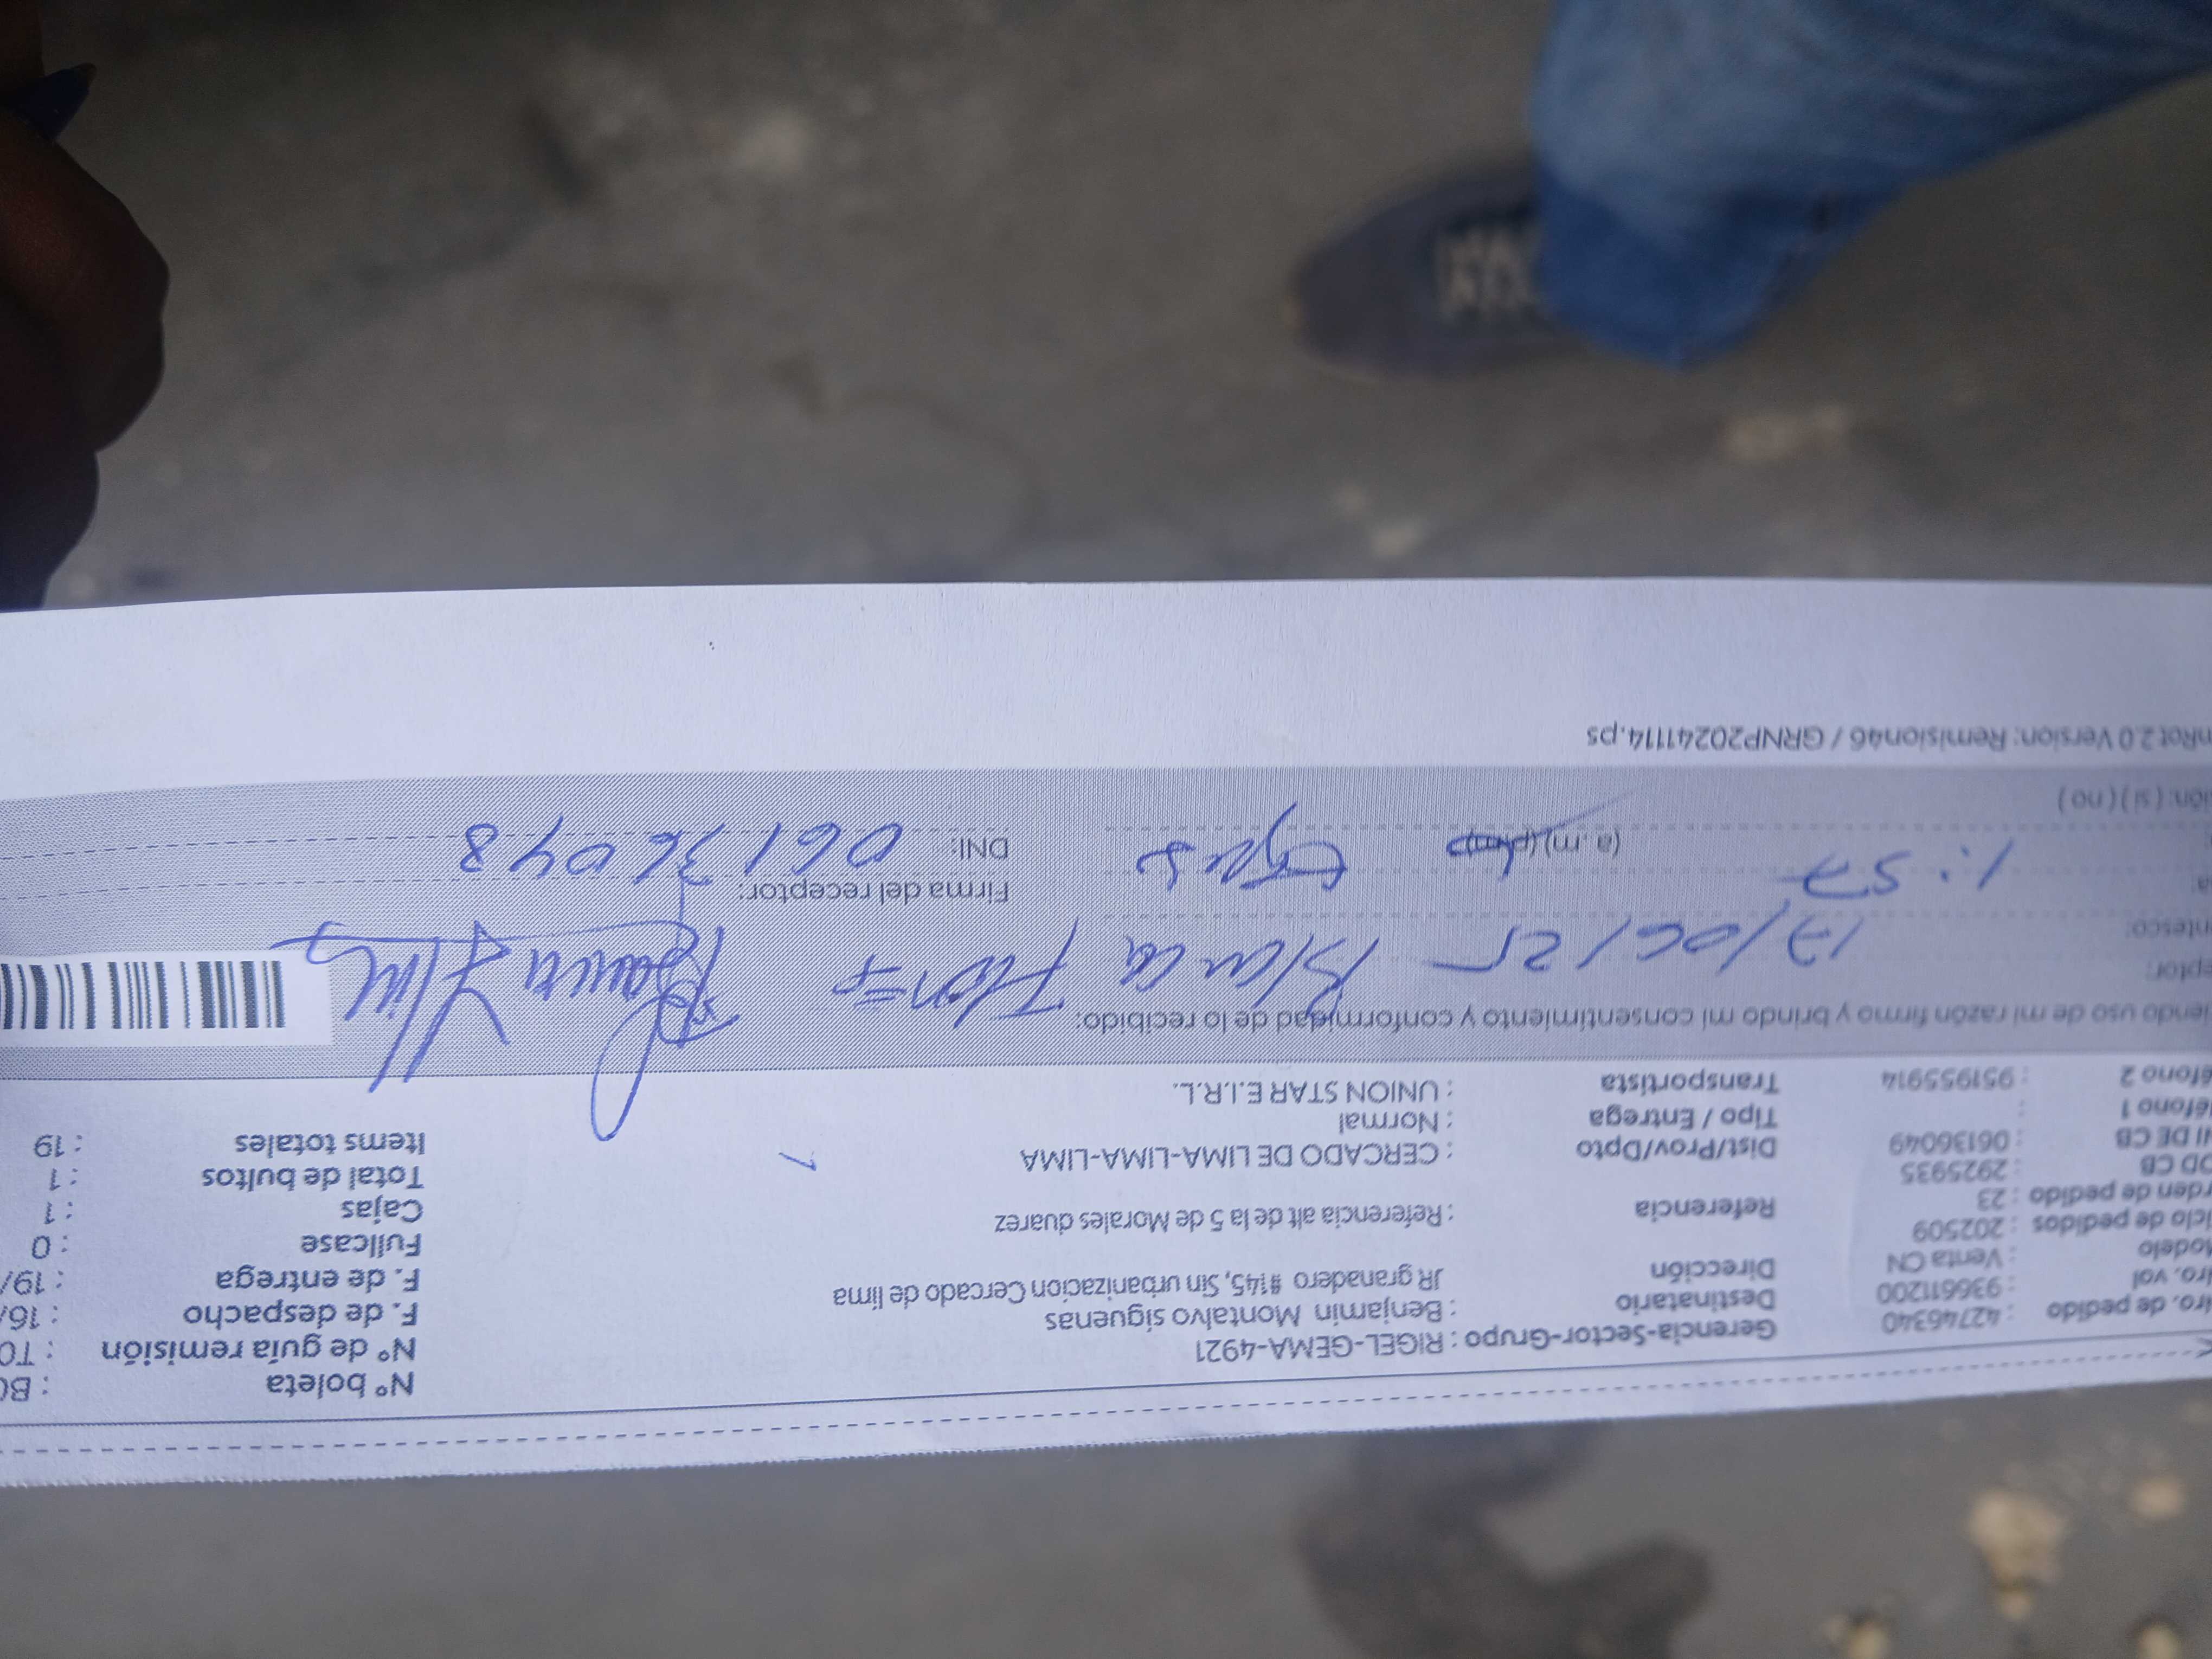 Nº boleta : B
Gerencia-Sector-Grupo : RIGEL-GEMA-4921
Nº de guía remisión : T0
ro. de pedido : 42746340
Destinatario : Benjamin Montalvo siguenas
F. de despacho : 16/
ro. vol : 936611200
Dirección JR granadero #145, Sin urbanizacion Cercado de lima
F. de entrega : 19/
odelo : Venta CN
Fullcase : 0
iclo de pedidos : 202509
Referencia : Referencia alt de la 5 de Morales duarez
Cajas : 1
rden de pedido : 23
Total de bultos : 1
OD CB : 2925935
Dist/Prov/Dpto : CERCADO DE LIMA-LIMA-LIMA
Items totales : 19
NI DE CB : 06136049
Tipo / Entrega : Normal
éfono 1 :
Transportista : UNION STAR E.I.R.L.
éfono 2 : 951955914
iendo uso de mi razón firmo y brindo mi consentimiento y conformidad de lo recibido:
eptor: Blanca Flores
ntesco:
Firma del receptor:
1:57 (a. m) (p.m)
DNI: 06136048
ión: ( si ) ( no )
nRot 2.0 Version: Remision46 / GRNP20241114.ps